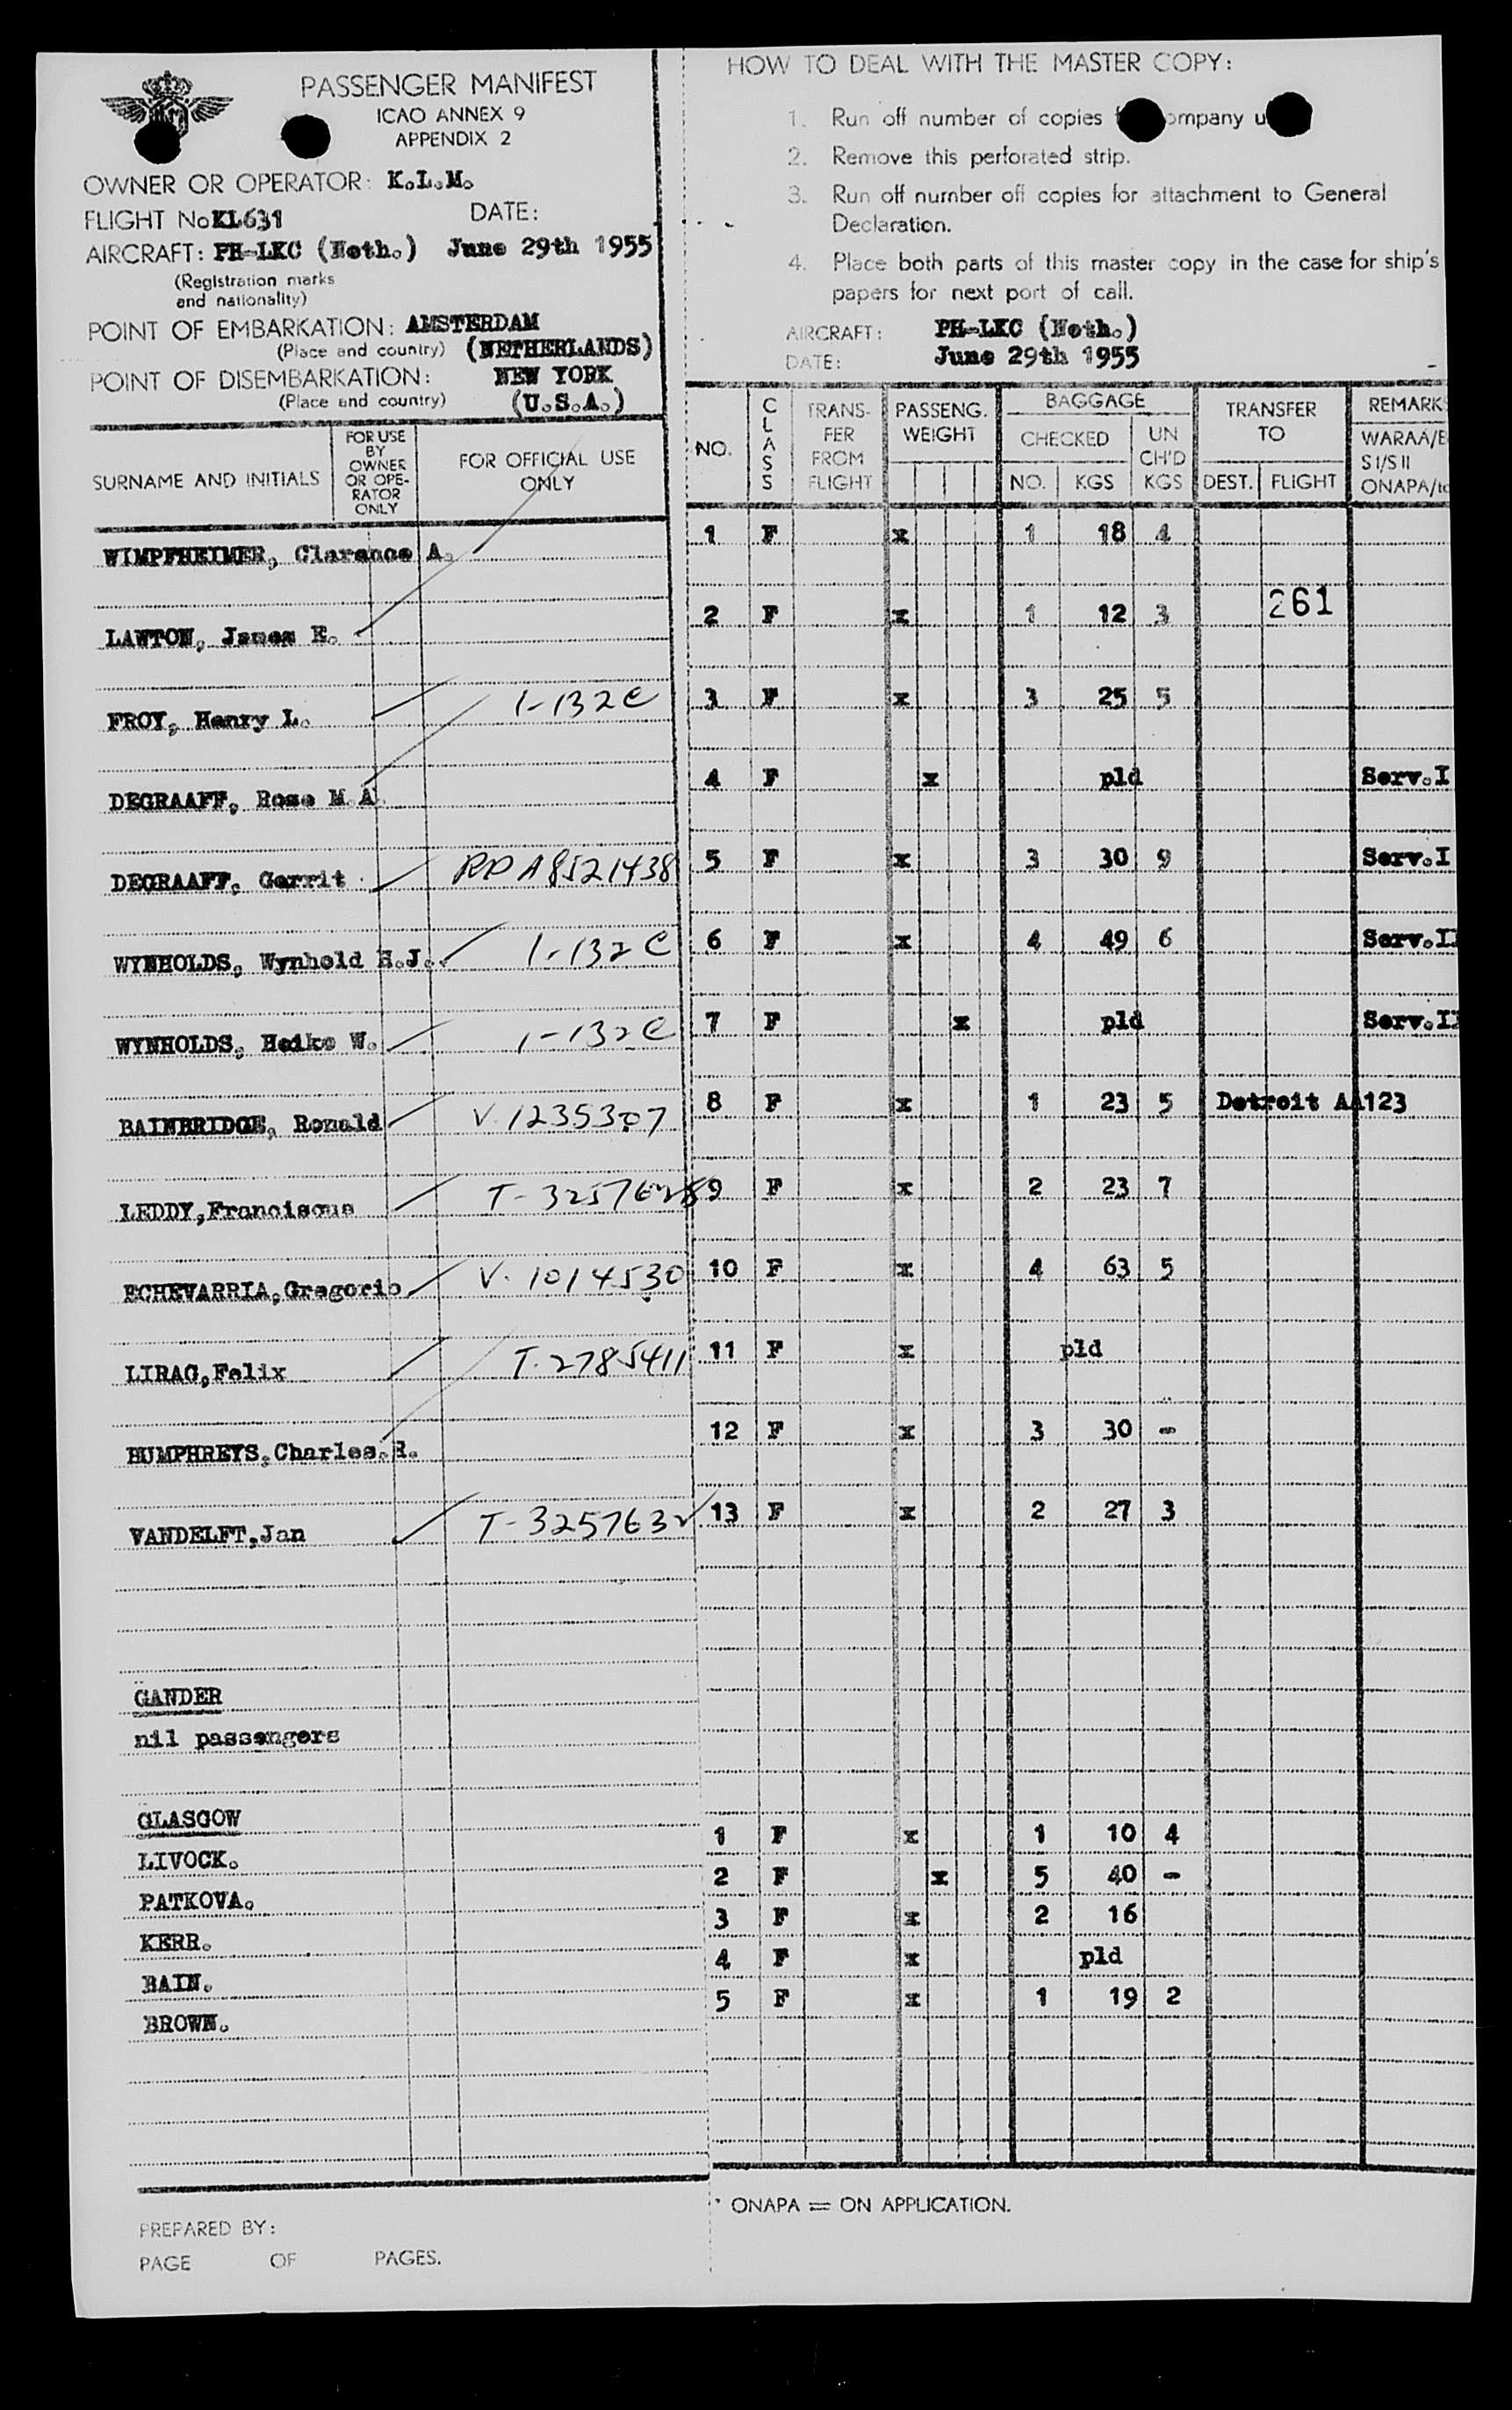 PASSENGER MANIFEST
ICAO ANNEX 9
APPENDIX 2
OWNER OR OPERATOR: K.L.M.
FLIGHT No KL631 DATE:
AIRCRAFT: PH-LKC (Neth.) June 29th 1955
(Registration marks
and nationality)
POINT OF EMBARKATION: AMSTERDAM
(Place and country) (NETHERLANDS)
POINT OF DISEMBARKATION: NEW YORK
(Place and country) (U.S.A.)
SURNAME AND INITIALS
FOR USE
BY
OWNER
OR OPE-
RATOR
ONLY
FOR OFFICIAL USE
ONLY
WIMPFHEIMER, Clarence A.
LAWTON, James E.
FROY, Henry L. 1-132C
DEGRAAFF, Rose M A.
DEGRAAFF, Gerrit RP A8521438
WYNHOLDS, Wynhold H.J. 1-132C
WYNHOLDS, Heiko W. 1-132C
BAINBRIDGE, Ronald V.1235307
LEDDY,Franciscus T-3257628
ECHEVARRIA,Gregorio V.1014530
LIRAG,Felix T.2785411
HUMPHREYS,Charles.R.
VANDELFT,Jan T-3257632
GANDER
nil passengers
GLASGOW
LIVOCK.
PATKOVA.
KERR.
BAIN.
BROWN.
PREPARED BY:
PAGE OF PAGES.
HOW TO DEAL WITH THE MASTER COPY:
1. Run off number of copies company
2. Remove this perforated strip.
3. Run off number off copies for attachment to General
Declaration.
4. Place both parts of this master copy in the case for ship's
papers for next port of call.
AIRCRAFT: PH-LKC (Neth.)
DATE: June 29th 1955
NO.
CLASS
TRANS-
FER
FROM
FLIGHT
PASSENG.
WEIGHT
BAGGAGE
CHECKED
NO. KGS
UN
CH'D
KGS
TRANSFER
TO
DEST. FLIGHT
REMARK
WARAA/E
S I/S II
ONAPA/to
1 F x 1 18 4
261
2 F x 1 12 3
3 F x 3 25 5
4 F x pld Serv.I
5 F x 3 30 9 Serv.I
6 F x 4 49 6 Serv.II
7 F x pld Serv.II
8 F x 1 23 5 Detroit AA123
9 F x 2 23 7
10 F x 4 63 5
11 F x pld
12 F x 3 30 -
13 F x 2 27 3
1 F x 1 10 4
2 F x 5 40 -
3 F x 2 16
4 F x pld
5 F x 1 19 2
* ONAPA = ON APPLICATION.